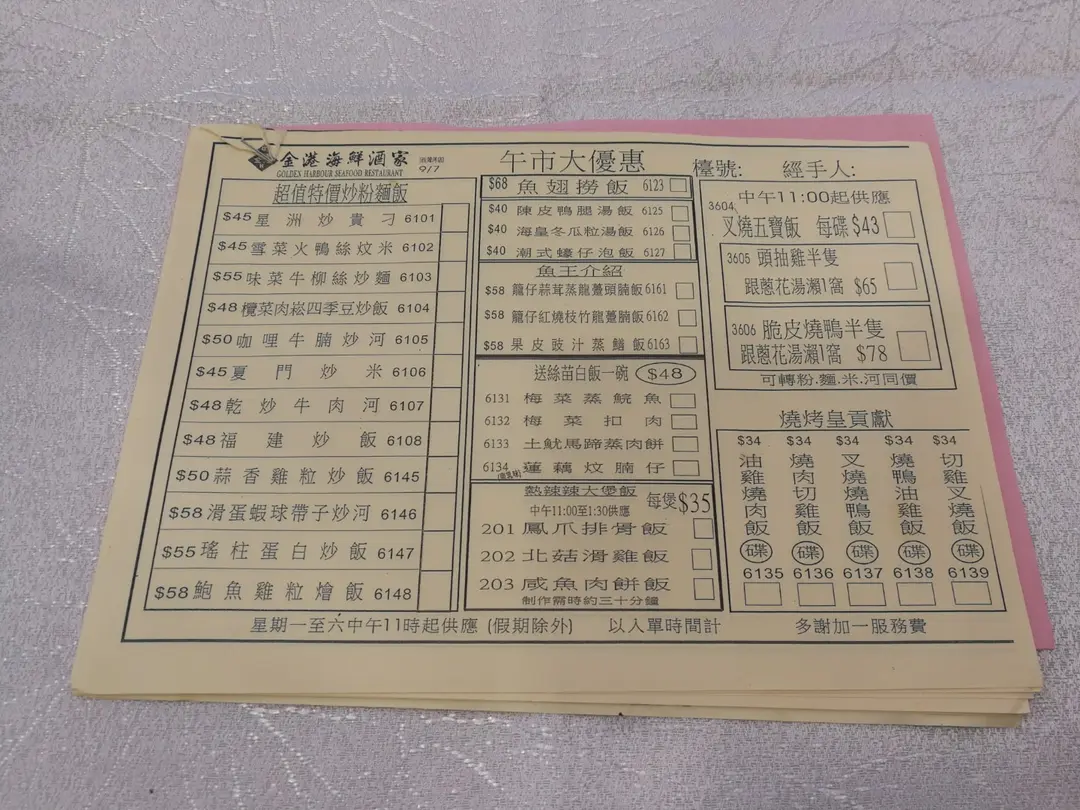 金港海鮮酒家
GOLDEN HARBOUR SEAFOOD RESTAURANT
9/7
午市大優惠
檯號:
經手人:
超值特價炒粉麵飯
$45 星洲炒貴刁 6101
$45 雪菜火鴨絲炆米 6102
$55 味菜牛柳絲炒麵 6103
$48 欖菜肉崧四季豆炒飯 6104
$50 咖哩牛腩炒河 6105
$45 夏門炒米 6106
$48 乾炒牛肉河 6107
$48 福建炒飯 6108
$50 蒜香雞粒炒飯 6145
$58 滑蛋蝦球帶子炒河 6146
$55 瑤柱蛋白炒飯 6147
$58 鮑魚雞粒燴飯 6148
$68 魚翅撈飯 6123
$40 陳皮鴨腿湯飯 6125
$40 海皇冬瓜粒湯飯 6126
$40 潮式蠔仔泡飯 6127
魚王介紹
$58 籠仔蒜茸蒸龍躉頭腩飯 6161
$58 籠仔紅燒枝竹龍躉腩飯 6162
$58 果皮豉汁蒸鱔飯 6163
送絲苗白飯一碗 $48
6131 梅菜蒸鯇魚
6132 梅菜扣肉
6133 土魷馬蹄蒸肉餅
6134 蓮藕炆腩仔
熱辣辣大煲飯
中午11:00至1:30供應
每煲$35
201 鳳爪排骨飯
202 北菇滑雞飯
203 咸魚肉餅飯
制作需時約三十分鐘
中午11:00起供應
3604
叉燒五寶飯 每碟$43
3605 頭抽雞半隻
跟蔥花湯瀨1窩 $65
3606 脆皮燒鴨半隻
跟蔥花湯瀨1窩 $78
可轉粉.麵.米.河同價
燒烤皇貢獻
$34 $34 $34 $34 $34
油雞燒肉飯 碟 6135
燒肉切雞飯 碟 6136
叉燒燒鴨飯 碟 6137
燒鴨油雞飯 碟 6138
切雞叉燒飯 碟 6139
星期一至六中午11時起供應 (假期除外) 以入單時間計 多謝加一服務費